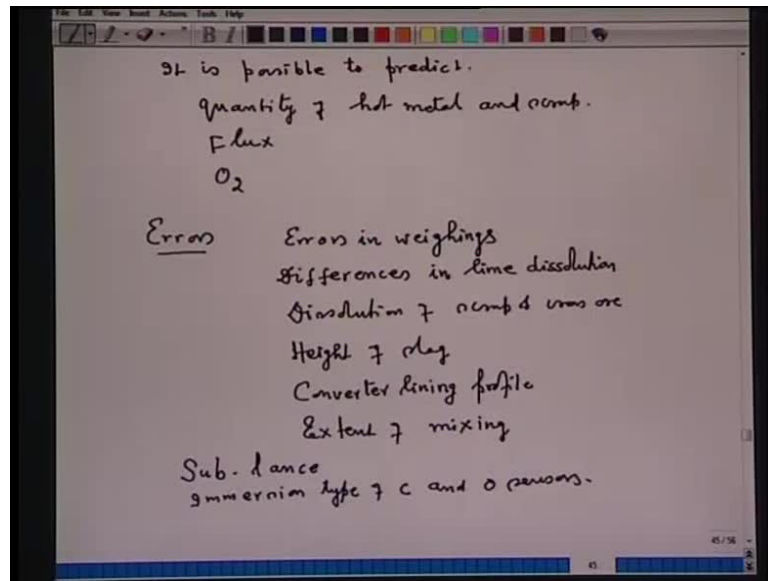 File Edit View Insert Actions Tools Help
It is possible to predict.
quantity of hot metal and scrap.
Flux
O2
Errors
Errors in weighings
Differences in lime dissolution
Dissolution of scrap & iron ore
Height of slag
Converter lining profile
Extent of mixing
Sub-lance
Immersion type of C and O sensors.
45/56
45